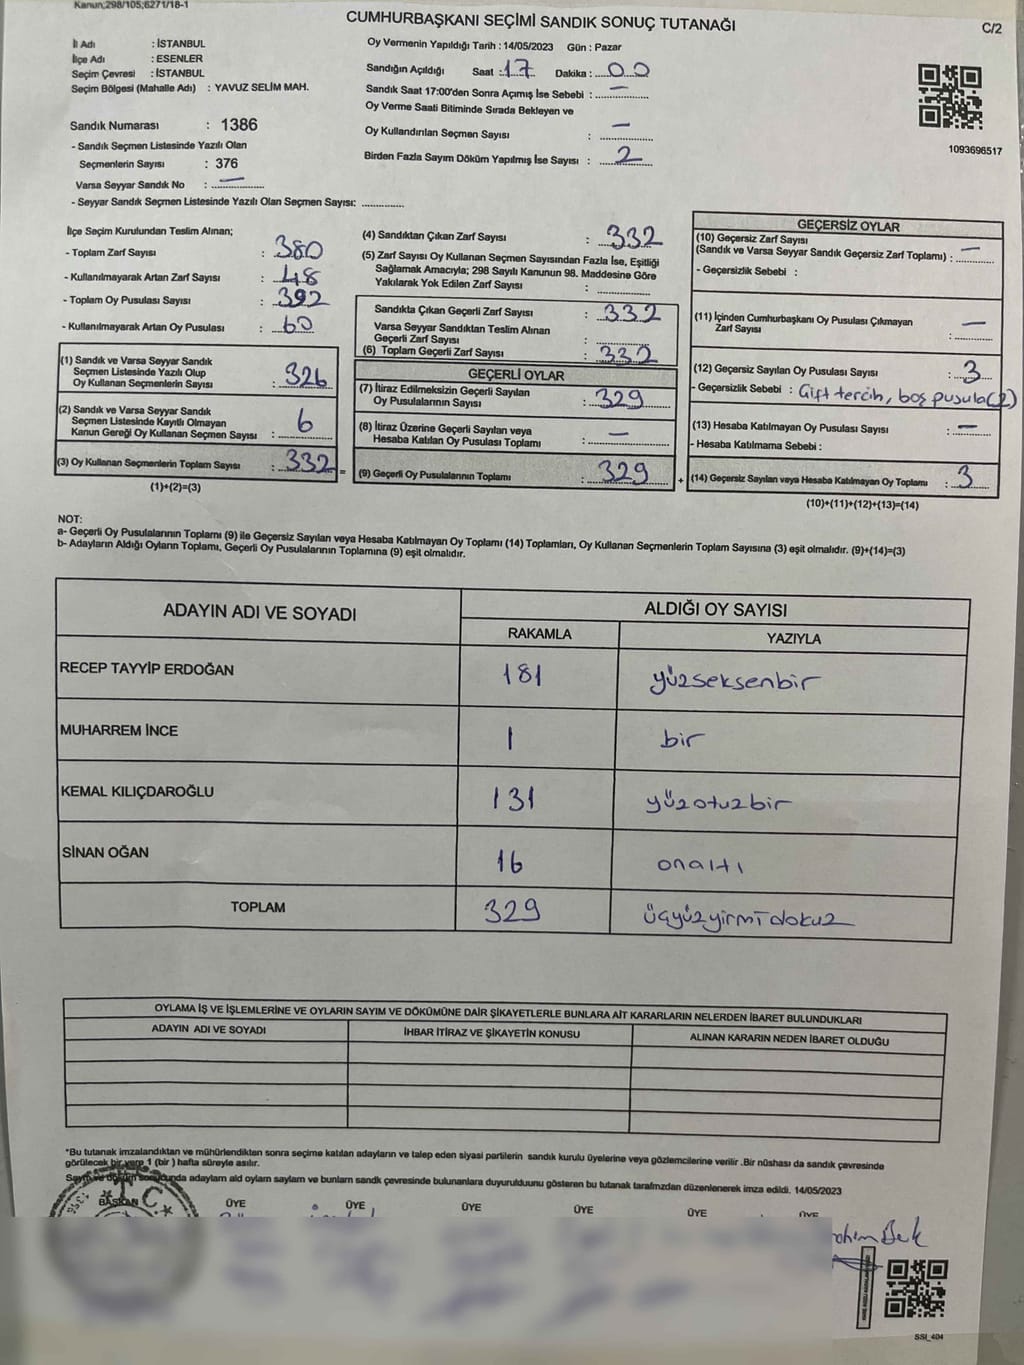 Kanun;298/105;6271/18-1
CUMHURBAŞKANI SEÇİMİ SANDIK SONUÇ TUTANAĞI
C/2
İl Adı : İSTANBUL
İlçe Adı : ESENLER
Seçim Çevresi : İSTANBUL
Seçim Bölgesi (Mahalle Adı) : YAVUZ SELİM MAH.
Sandık Numarası : 1386
- Sandık Seçmen Listesinde Yazılı Olan
Seçmenlerin Sayısı : 376
Varsa Seyyar Sandık No : —
- Seyyar Sandık Seçmen Listesinde Yazılı Olan Seçmen Sayısı: ............
Oy Vermenin Yapıldığı Tarih : 14/05/2023 Gün : Pazar
Sandığın Açıldığı Saat : 17 Dakika : 00
Sandık Saat 17:00'den Sonra Açımış İse Sebebi : —
Oy Verme Saati Bitiminde Sırada Bekleyen ve
Oy Kullandırılan Seçmen Sayısı : —
Birden Fazla Sayım Döküm Yapılmış İse Sayısı : 2
1093696517
İlçe Seçim Kurulundan Teslim Alınan;
- Toplam Zarf Sayısı : 380
- Kullanılmayarak Artan Zarf Sayısı : 48
- Toplam Oy Pusulası Sayısı : 392
- Kullanılmayarak Artan Oy Pusulası : 60
(1) Sandık ve Varsa Seyyar Sandık
Seçmen Listesinde Yazılı Olup
Oy Kullanan Seçmenlerin Sayısı : 326
(2) Sandık ve Varsa Seyyar Sandık
Seçmen Listesinde Kayıtlı Olmayan
Kanun Gereği Oy Kullanan Seçmen Sayısı : 6
(3) Oy Kullanan Seçmenlerin Toplam Sayısı : 332 =
(1)+(2)=(3)
(4) Sandıktan Çıkan Zarf Sayısı : 332
(5) Zarf Sayısı Oy Kullanan Seçmen Sayısından Fazla İse, Eşitliği
Sağlamak Amacıyla; 298 Sayılı Kanunun 98. Maddesine Göre
Yakılarak Yok Edilen Zarf Sayısı : ............
Sandıkta Çıkan Geçerli Zarf Sayısı : 332
Varsa Seyyar Sandıktan Teslim Alınan
Geçerli Zarf Sayısı : ............
(6) Toplam Geçerli Zarf Sayısı : 332
GEÇERLİ OYLAR
(7) İtiraz Edilmeksizin Geçerli Sayılan
Oy Pusulalarının Sayısı : 329
(8) İtiraz Üzerine Geçerli Sayılan veya
Hesaba Katılan Oy Pusulası Toplamı : —
(9) Geçerli Oy Pusulalarının Toplamı : 329 +
GEÇERSİZ OYLAR
(10) Geçersiz Zarf Sayısı
(Sandık ve Varsa Seyyar Sandık Geçersiz Zarf Toplamı) : —
- Geçersizlik Sebebi :
(11) İçinden Cumhurbaşkanı Oy Pusulası Çıkmayan
Zarf Sayısı : —
(12) Geçersiz Sayılan Oy Pusulası Sayısı : 3
- Geçersizlik Sebebi : Çift tercih, boş pusula(2)
(13) Hesaba Katılmayan Oy Pusulası Sayısı : —
- Hesaba Katılmama Sebebi :
(14) Geçersiz Sayılan veya Hesaba Katılmayan Oy Toplamı : 3
(10)+(11)+(12)+(13)=(14)
NOT:
a- Geçerli Oy Pusulalarının Toplamı (9) ile Geçersiz Sayılan veya Hesaba Katılmayan Oy Toplamı (14) Toplamları, Oy Kullanan Seçmenlerin Toplam Sayısına (3) eşit olmalıdır. (9)+(14)=(3)
b- Adayların Aldığı Oyların Toplamı, Geçerli Oy Pusulalarının Toplamına (9) eşit olmalıdır.
ADAYIN ADI VE SOYADI ALDIĞI OY SAYISI
RAKAMLA YAZIYLA
RECEP TAYYİP ERDOĞAN 181 yüzseksenbir
MUHARREM İNCE 1 bir
KEMAL KILIÇDAROĞLU 131 yüzotuzbir
SİNAN OĞAN 16 onaltı
TOPLAM 329 üçyüzyirmidokuz
OYLAMA İŞ VE İŞLEMLERİNE VE OYLARIN SAYIM VE DÖKÜMÜNE DAİR ŞİKAYETLERLE BUNLARA AİT KARARLARIN NELERDEN İBARET BULUNDUKLARI
ADAYIN ADI VE SOYADI İHBAR İTİRAZ VE ŞİKAYETİN KONUSU ALINAN KARARIN NEDEN İBARET OLDUĞU
*Bu tutanak imzalandıktan ve mühürlendikten sonra seçime katılan adayların ve talep eden siyasi partilerin sandık kurulu üyelerine veya gözlemcilerine verilir .Bir nüshası da sandık çevresinde
görülecek bir yere 1 (bir ) hafta süreyle asılır.
Sayım ve döküm sonucunda adayların aldığı oyların sayıları ve bunların sandık çevresinde bulunanlara duyurulduğunu gösteren bu tutanak tarafımızdan düzenlenerek imza edildi. 14/05/2023
BAŞKAN ÜYE ÜYE ÜYE ÜYE ÜYE ÜYE
T.C.
SSİ_404